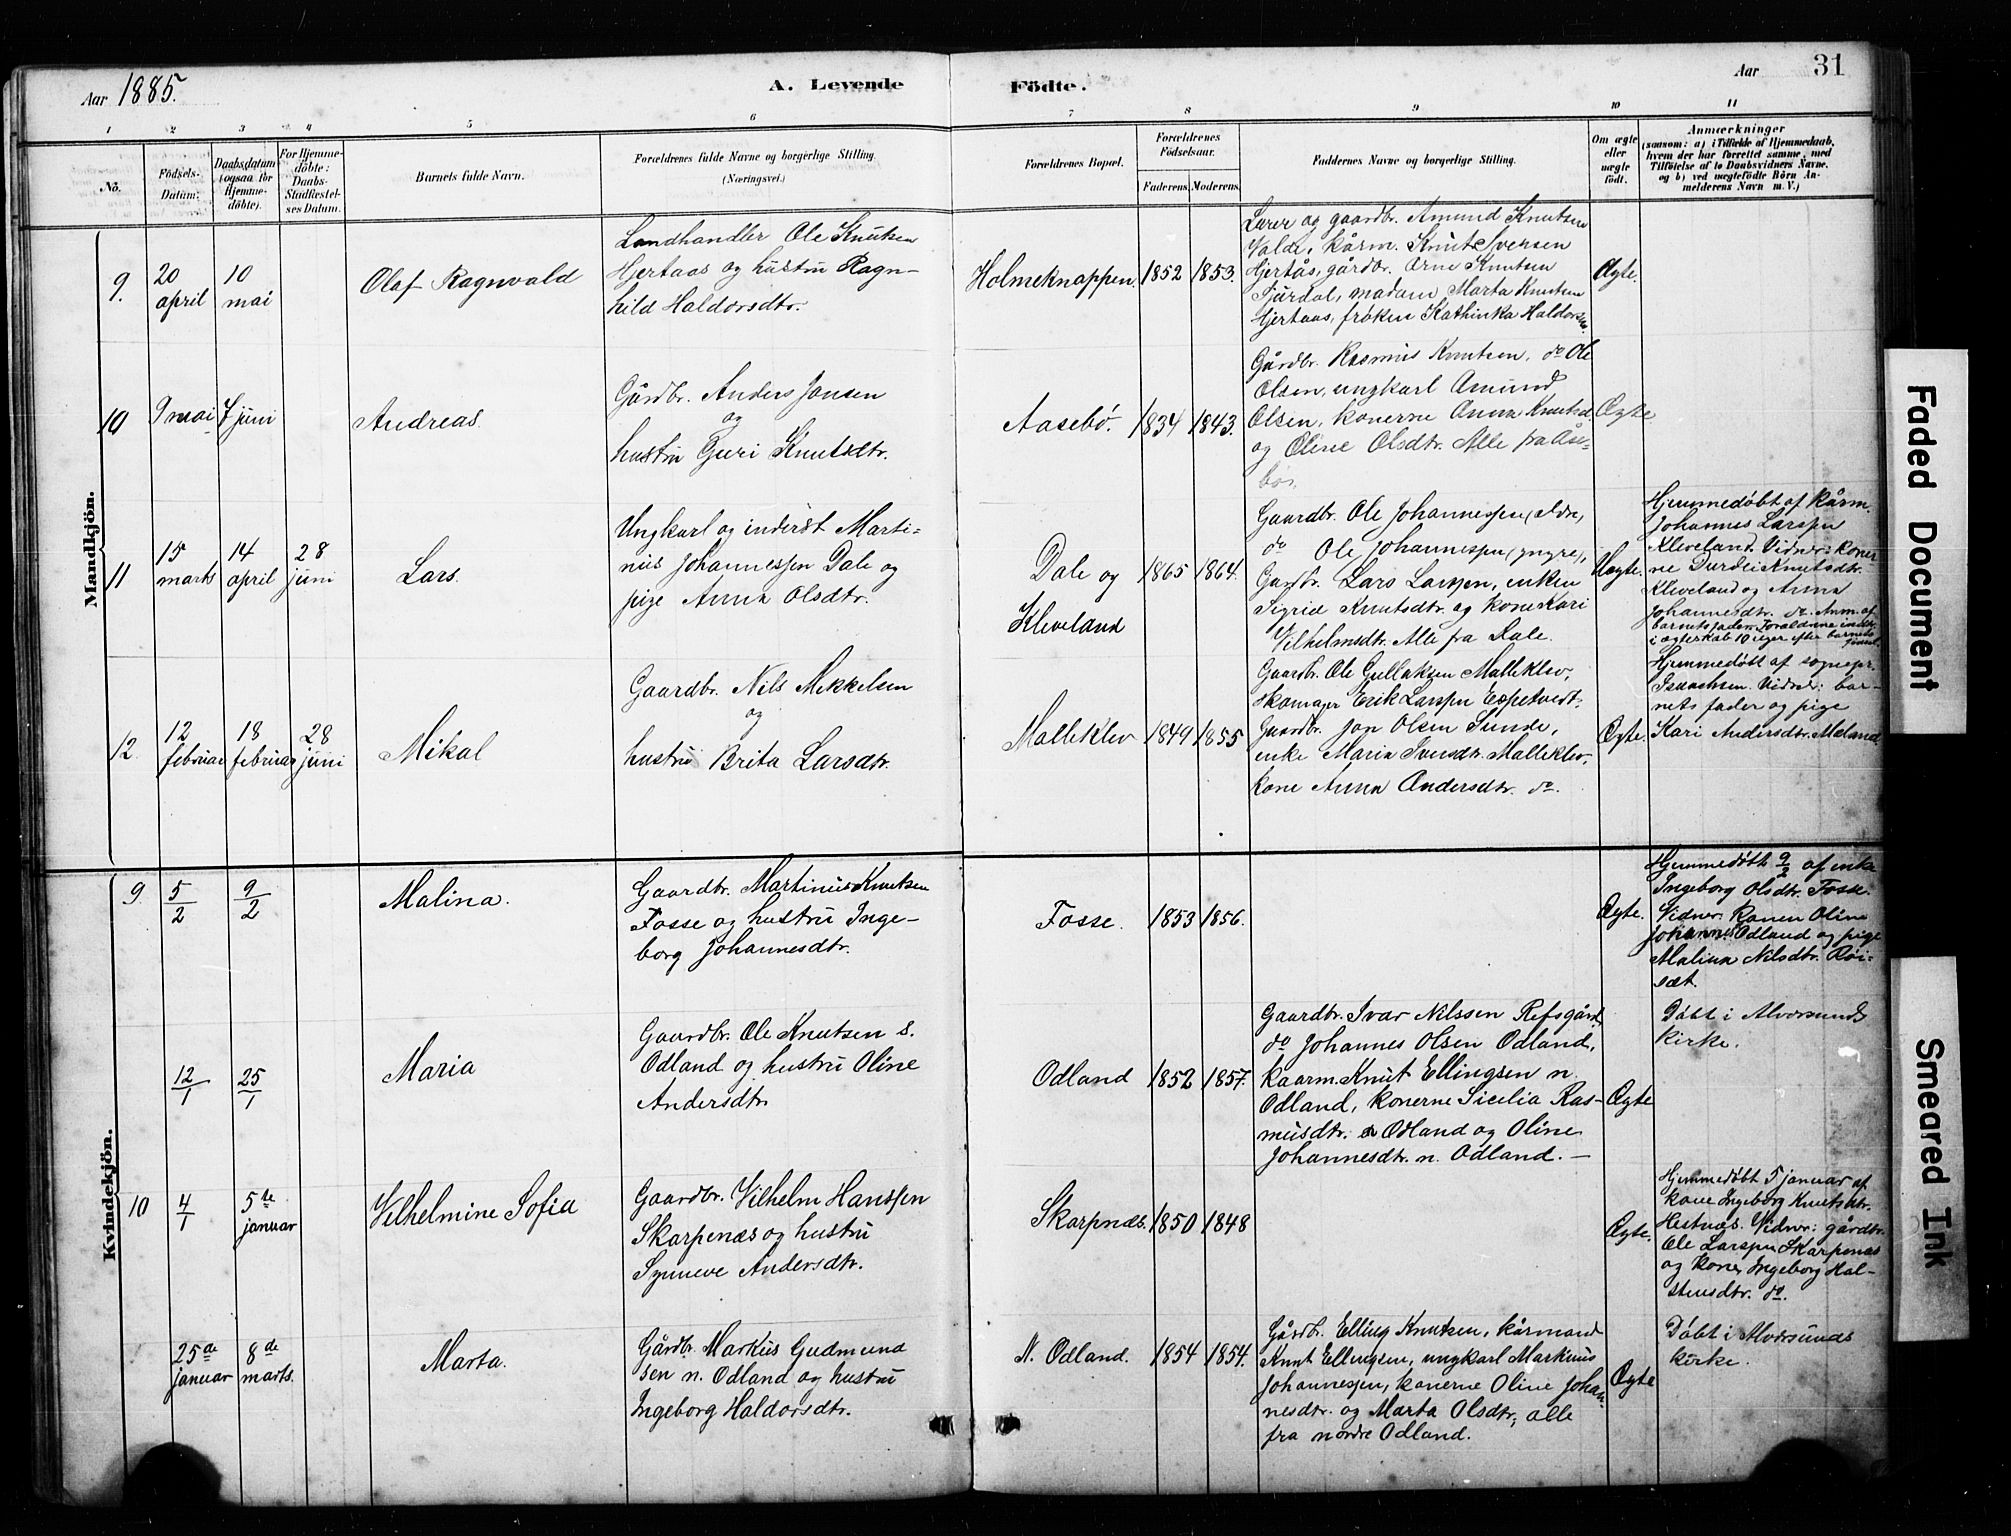 Aar 1885.
A. Levende
Födte.
Aar
31
1
2
3
4
5
6
7
8
9
10
11
No.
Födsels-
Datum.
Daabsdatum
(ogsaa for
Hjemme-
döbte).
For Hjemme-
döbte:
Daabs-
Stadfæstel-
ses Datum.
Barnets fulde Navn.
Forældrenes fulde Navne og borgerlige Stilling.
(Næringsvei.)
Forældrenes Bopæl.
Forældrenes
Födselsaar.
Faderens.
Moderens.
Faddernes Navne og borgerlige Stilling.
Om ægte
eller
uægte
födt.
Anmærkninger
(saasom: a) i Tilfælde af Hjemmedaab,
hvem der har forrettet samme, med
Tilföielse af to Daabsvidners Navne,
og b) ved uægtefödte Börn An-
melderens Navn m. V.)
Mandkjön.
9.
20
april
10
mai
Olaf Ragnvald
Landhandler Ole Knutsen
Hjertaas og hustru Ragn-
hild Haldorsdtr.
Holmeknappen
1852
1853.
Lærer og gaardbr. Amund Knutsen
Valde, kårm. Knut Iversen
Hjertås, gårdbr. Arne Knutsen
Fjurdal, madam Marta Knutsen
Hjertaas, frøken Kathinka Haldorsen.
Ægte.
10
9 mai
7 juni
Andreas.
Gårdbr. Anders Jansen
og
hustru Guri Knutsdtr.
Aasebø.
1834
1843.
Gårdbr. Rasmus Knutsen, do Ole
Olsen, ungkarl Amund
Olsen, konerne Anna Knutsd.
og Oline Olsdtr. Alle fra Åse-
bø.
Ægte
11
15
marts
14
april
28
juni
Lars.
Ungkarl og inderst Marti-
nus Johannessen Dale og
pige Anna Olsdtr.
Dale og
Kleveland
1865
1864.
Gaardbr. Ole Johannessen, eldre,
do Ole Johannessen (yngre),
Gaardbr. Lars Larssen, enken
Sigrid Knutsdtr. og kone Kari
Vilhelmsdtr. Alle fra Dale.
Uægte.
Hjemmedøbt af kårm.
Johannes Larssen
Kleveland. Vidner: koner-
ne Durdei Knutsdtr.
Kleveland og Anna
Johannesdtr. do. Anm. af
barnets fader. Forældrene indtr.
i ægteskab 10 uger efter barnets
fødsel.
12.
12
februar
18
februar
28
juni
Mikal
Gaardbr. Nils Mikkelsen
og
hustru Brita Larsdtr.
Malleklev
1849
1855
Gaardbr. Ole Gullaksen Malleklev,
skomager Erik Larssen Espetvedt,
Gaardbr. Jon Olsen Sunde,
enke Maria Iversdtr. Malleklev,
kone Anna Andersdtr. do.
Ægte.
Hjemmedøbt af sognepr.
Isaachsen. Vidner: bar-
nets fader og pige
Kari Andersdtr. Mæland
Kvindekjön.
9.
5/2
9/2
Malina.
Gaardbr. Martinus Knutsen
Fosse og hustru Inge-
borg Johannesdtr.
Fosse.
1853
1856.
Ægte.
Hjemmedøbt 9/2 af enke
Ingeborg Olsdtr. Fosse.
Vidner: Konen Oline
Johannesd. Odland og pige
Malina Nilsdtr. Røi-
sæt.
12/1
25/1
Maria
Gaardbr. Ole Knutsen s.
Odland og hustru Oline
Andersdtr.
Odland
1852
1857.
Gaardbr. Ivar Nilssen Refsgård,
do Johannes Olsen Odland,
kaarm. Knut Ellingsen n.
Odland, konerne Sicilia Ras-
musdtr. s Odland og Oline
Johannesdtr. n. Odland. —
Ægte
Døbt i Alversunds
kirke.
10
4/1
5te
januar
Vilhelmine Sofia
Gaardbr. Vilhelm Hanssen
Skarpenæs og hustru
Synneve Andersdtr.
Skarpnæs.
1850
1848
Ægte.
Hjemmedøbt 5 januar af
kone Ingeborg Knutsdtr.
Hestnæs. Vidner: gårdbr.
Ole Larssen Skarpenæs
og kone, Ingeborg Hal-
stensdtr. do.
25de
januar
8de
marts.
Marta.
Gårdbr. Markus Gudmund
sen n. Odland og hustru
Ingeborg Haldorsdtr.
N. Odland.
1854
1854.
Gårdbr. Elling Knutsen, kårmand
Knut Ellingsen, ungkarl Markus
Johannessen, konerne Oline Johan-
nesdtr. og Marta Olsdtr., alle
fra nordre Odland.
Ægte
Døbt i Alversunds
kirke.
Faded Document
Smeared Ink